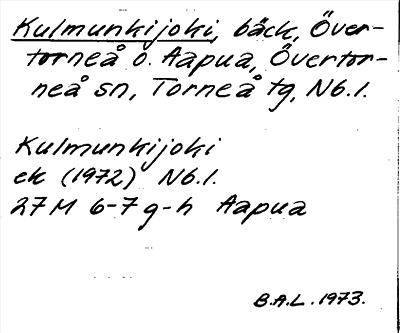 Kulmunkijoki, bäck, Över-
torneå o. Aapua, Övertor-
neå sn, Torneå tg, Nb.l.
Kulmunkijoki
ek (1972) Nb.l.
27M 6-7 g-h Aapua
B.A.L. 1973.